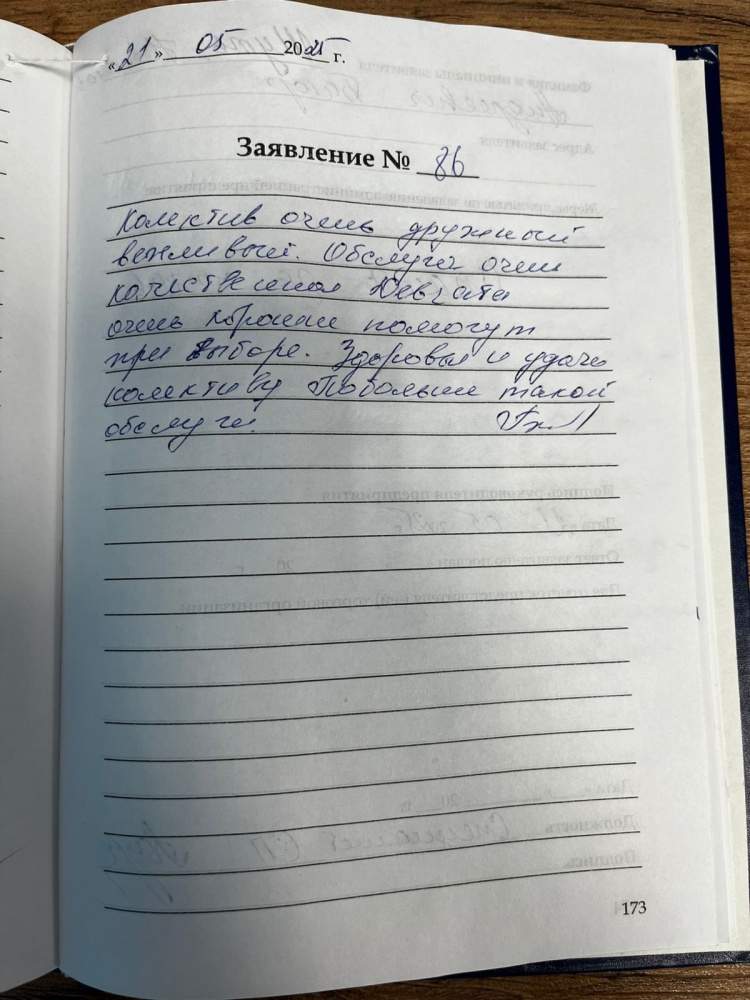 «21» 05 2025 г.
Заявление № 86
Колектив очень дружный
вежливый. Обслуга очень
качиственная Девчата
очень хорошии помогут
при выборе. Здоровья и удачи
колективу Побольши такой
обслуги.
173